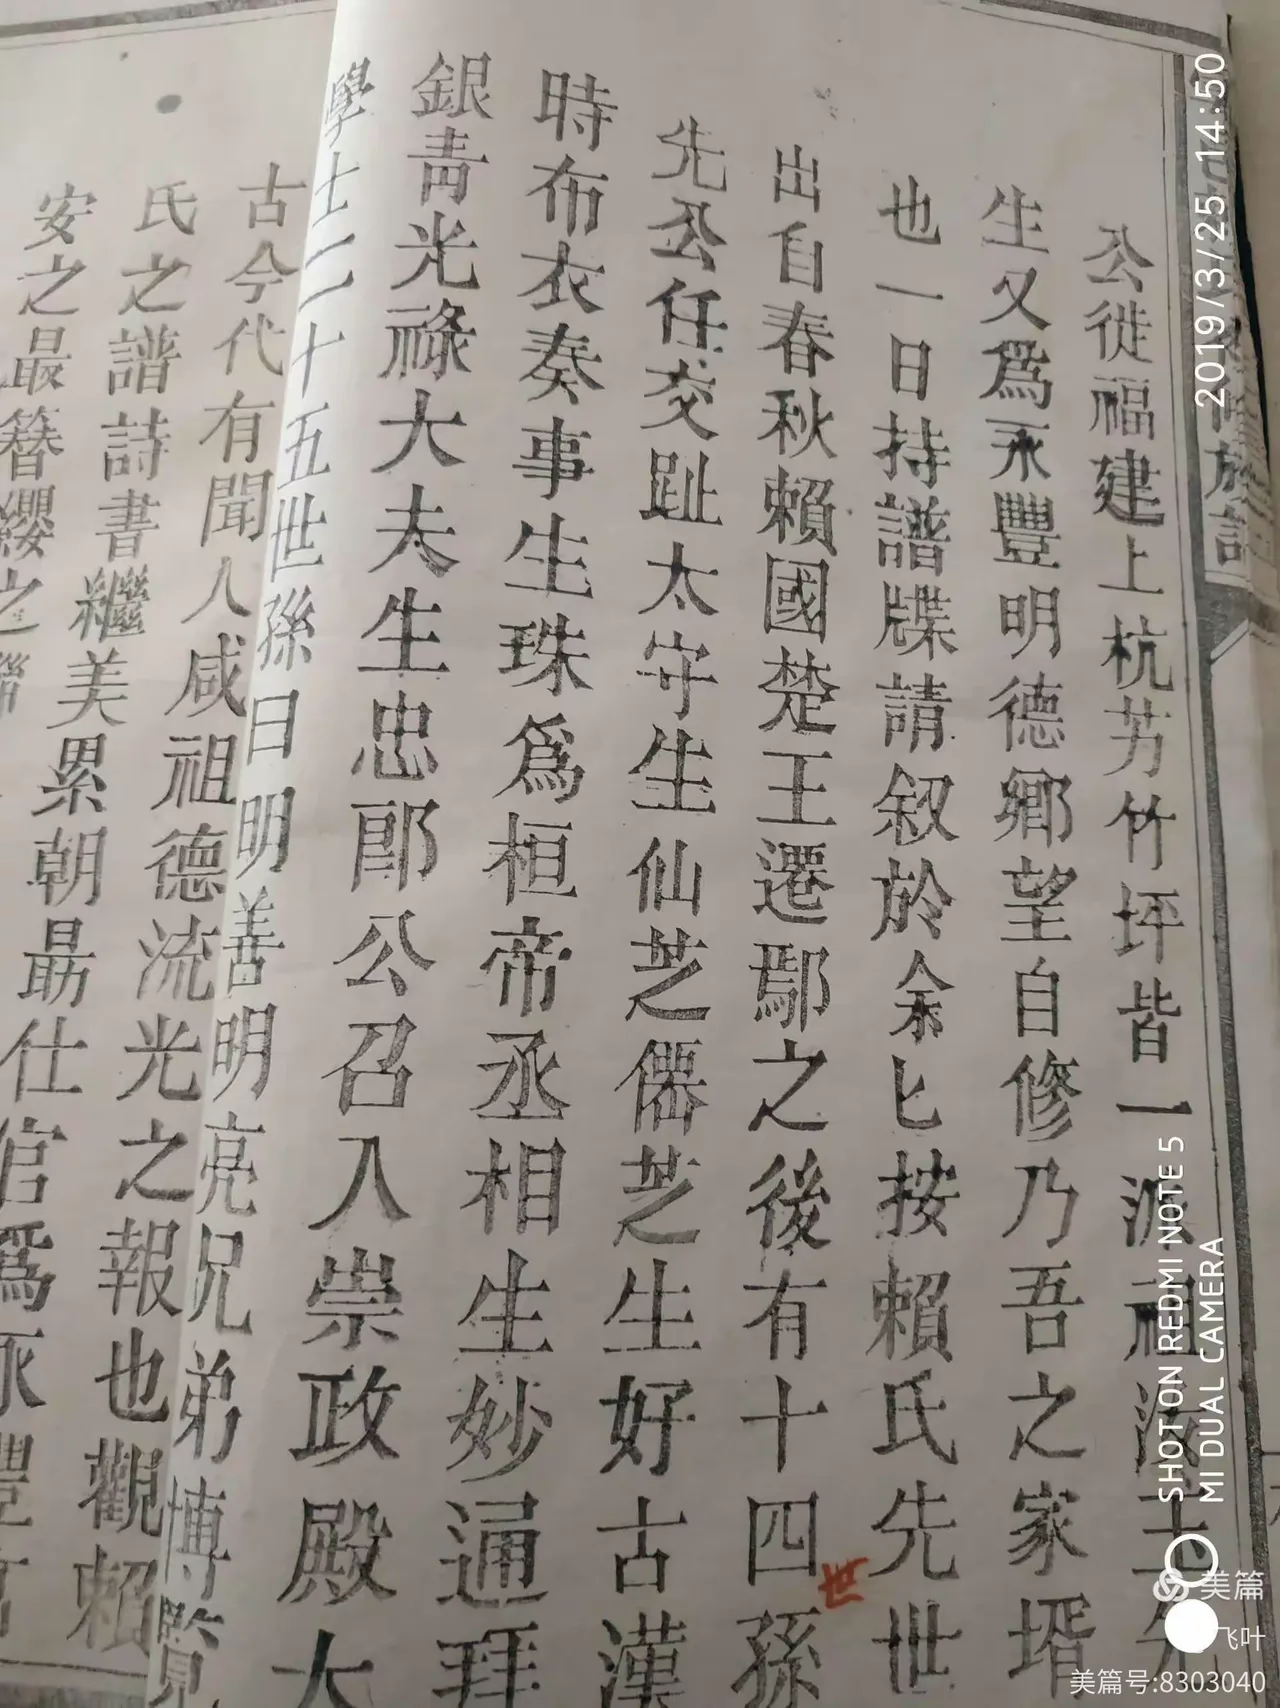 公徙福建上杭芳竹坪皆一派祖
生又爲永豐明德鄉望自修乃吾之家壻
也一日持譜牒請叙於余匕按賴氏先世
出自春秋賴國楚王遷鄢之後有十四孫
世
先公任交趾太守生仙芝僊芝生好古漢
時布衣奏事生珠爲桓帝丞相生妙通拜
銀青光祿大夫生忠郎公召入崇政殿大
學士二十五世孫曰明善明亮兄弟博覽
古今代有聞人咸祖德流光之報也觀賴
氏之譜詩書繼美累朝最仕官爲永豐
安之最簪纓之
2019/3/25 14:50
SHOT ON REDMI NOTE 5
MI DUAL CAMERA
美篇
飞叶
美篇号:8303040